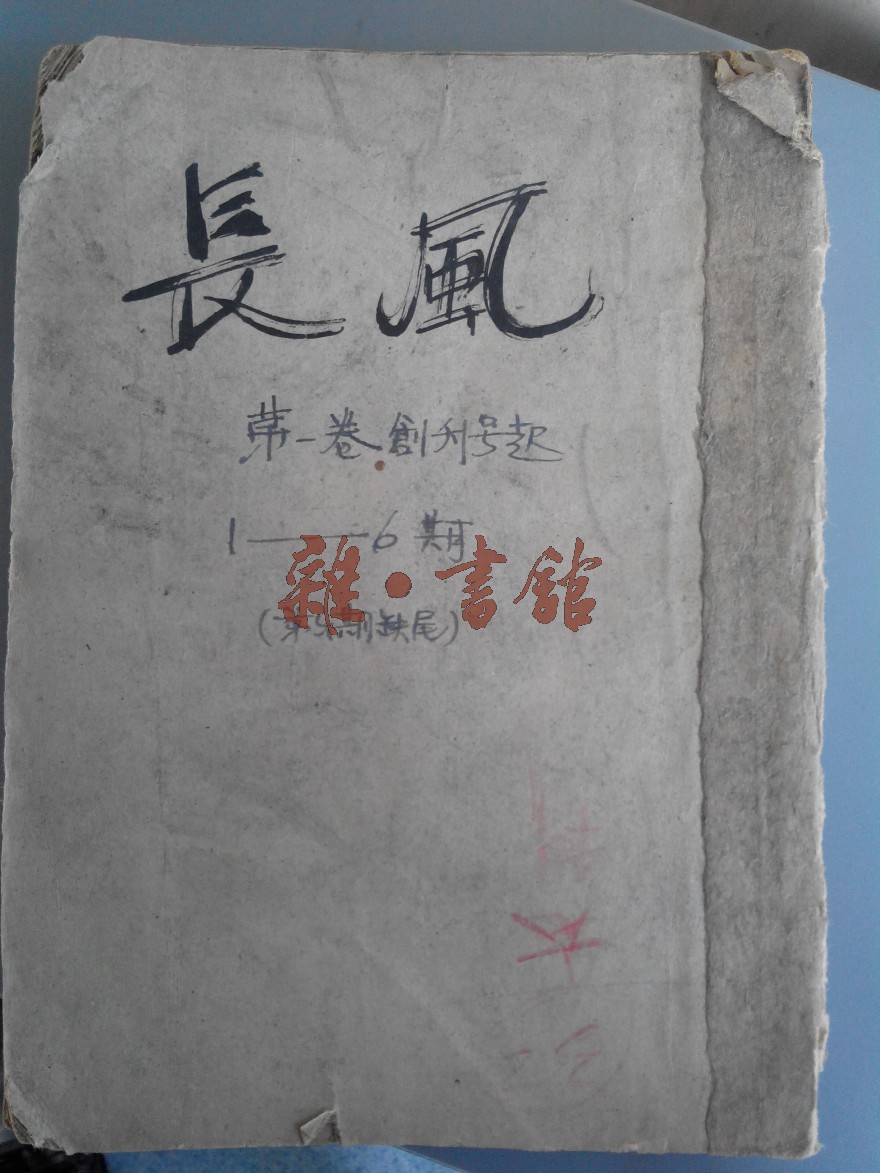 長風
第一卷創刊号起
1——6期
雜·書館
(第5期缺尾)